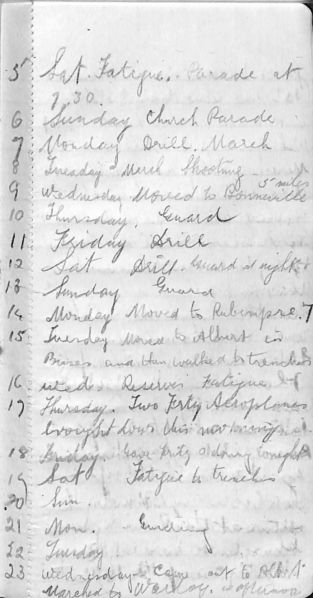 5 Sat. Fatigue. Parade at
7.30.
6 Sunday Church Parade
7 Monday Drill. March
8 Tuesday March Shooting
5 miles
9 Wednesday Moved to Bonneville
10 Thursday. Guard
11 Friday Drill
12 Sat Drill. Guard at night
13 Sunday Guard
14 Monday Moved to Rubempre. 7
15 Tuesday Moved to Albert in
Buses and then walked to trenches
16 Wed. Reserves Fatigue
17 Thursday. Two Frty Aeroplanes
brought down this morning
18 Friday tonight
19 Sat Fatigue to trenches
20 Sun.
21 Mon.
22 Tuesday
23 Wednesday Came out to
Marched to Warloy.